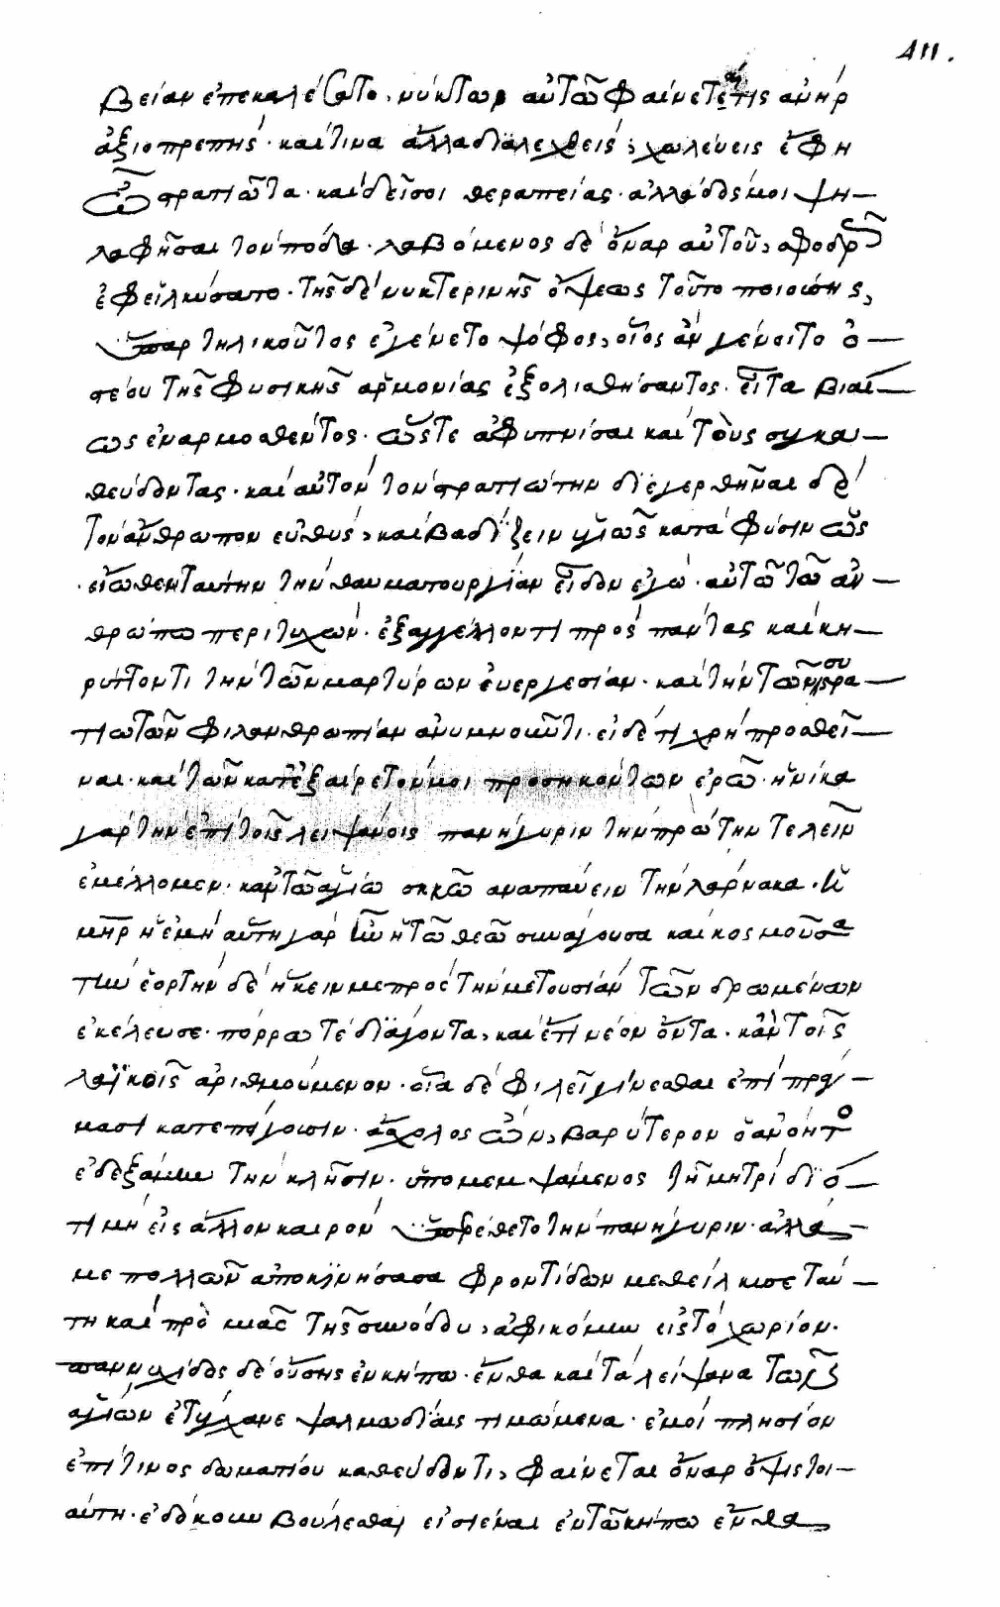 411.
βείαν ἐπεκαλέσατο. νύκτωρ αὐτῶ φαίνεταί τις ἀνήρ
ἀξιοπρεπής. καί τινα ἄλλα διαλεχθείς, χωλεύεις ἔφη
ὦ στρατιῶτα. καὶ δεῖσοι θεραπείας. ἀλλὰ δός μοι ψη-
λαφῆσαι τὸν πόδα. λαβόμενος δὲ ὄναρ αὐτοῦ, σφοδρῶς
ἐφειλκύσατο. τῆς δὲ νυκτερινῆς ὄψεως τοῦτο ποιούσης,
ὕπαρ τηλικοῦτος ἐγένετο ψόφος, οἷος ἂν γένοιτο ὀ-
στέου τῆς φυσικῆς ἁρμονίας ἐξολισθήσαντος. εἶτα βιαί-
ως ἐναρμοσθέντος. ὥστε ἀφυπνίσαι καὶ τοὺς συγκα-
θεύδοντας. καὶ αὐτὸν τὸν στρατιώτην διεγερθῆναι δὲ
τὸν ἄνθρωπον εὐθύς, καὶ βαδίζειν ὑγιῶς κατὰ φύσιν ὡς
εἴωθεν ταύτην τὴν θαυματουργίαν εἶδον ἐγώ. αὐτῶ τῶ ἀν-
θρώπω περιτυχών. ἐξαγγέλλοντι πρὸς πάντας καὶ κη-
ρύττοντι τὴν τῶν μαρτύρων εὐεργεσίαν. καὶ τὴν τῶν συστρα-
τιωτῶν φιλανθρωπίαν ἀνυμνοῦντι. εἰ δέ τι χρὴ προσθεῖ-
ναι. καὶ τῶν κατεξαίρετόν μοι προσηκόντων ἐρῶ. ἡνίκα
γὰρ τὴν ἐπὶ τοῖς λειψάνοις πανήγυριν τὴν πρώτην τελεῖν
ἐμέλλομεν. κἀν τῶ ἁγίω σηκῶ ἀναπαύειν τὴν λάρνακα. ἡ
μῆρ ἡ ἐμὴ αὕτη γὰρ ἦν ἡ τῶ θεῶ συνάγουσα καὶ κοσμοῦσα
τὴν ἑορτὴν δὲ ἥκειν με πρὸς τὴν μετουσίαν τῶν δρωμένων
ἐκέλευσε. πόρρω τὲ διάγοντα, καὶ ἔτι νέον ὄντα. κἂν τοῖς
λαϊκοῖς ἀριθμούμενον. οἷα δὲ φιλεῖ γίνεσθαι ἐπὶ πράγ-
μασι κατεπείγουσιν. ἄσχολος ὤν, βαρύτερον ὁ ἀνόητο
ἐδεξάμην τὴν κλῆσιν. ὑπομεμψάμενος τῆ μητρὶ διό-
τι μὴ εἰς ἄλλον καιρὸν ὑπερέθετο τὴν πανήγυριν. ἀλλά
με πολλῶν ἀποκινήσασα φροντίδων μεθείλκυσε ταύ-
τη καὶ πρὸ μιᾶς τῆς συνόδου, ἀφικόμην εἰς τὸ χωρίον.
παννυχίδος δὲ οὔσης ἐν κήπω. ἔνθα καὶ τὰ λείψανα τῶν
ἁγίων ἐτύγχανε ψαλμωδίαις τιμώμενα. ἐμοὶ πλησίον
ἐπί τινος δωματίου καθεύδοντι, φαίνεται ὄναρ ὄψις τοι-
αύτη. ἐδόκουν βούλεσθαι εἰσιέναι ἐν τῶ κήπω ἔνθα